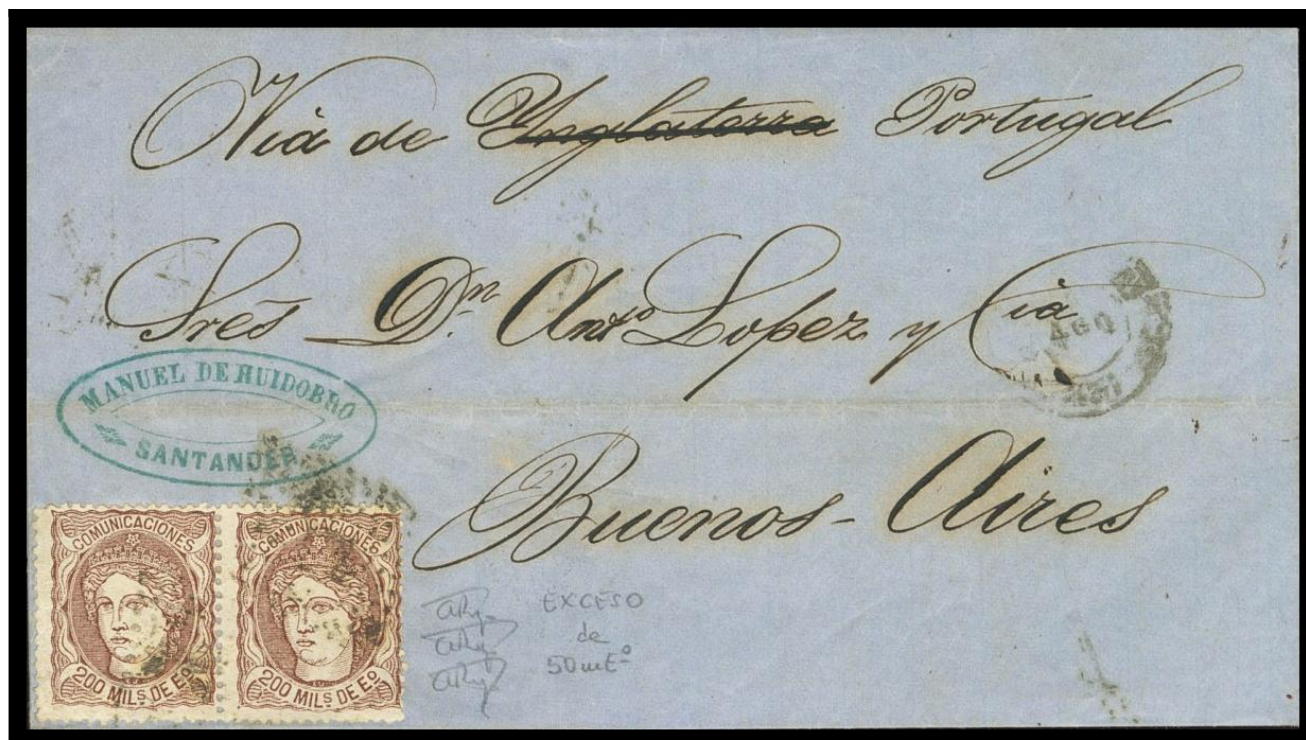 Viá de Inglaterra Portugal
Sres̃ Dn Anto Lopez y Cia
AGO
MANUEL DE HUIDOBRO
SANTANDER
Buenos-Aires
COMUNICACIONES
200 MILS DE Eo
COMUNICACIONES
200 MILS DE Eo
EXCESO
de
50 mEo